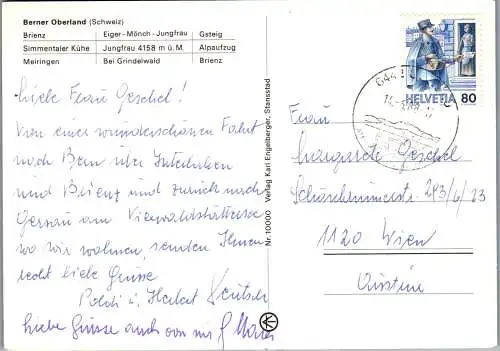 Berner Oberland (Schweiz)
Brienz Eiger-Mönch-Jungfrau Gsteig
Simmentaler Kühe Jungfrau 4158 m ü. M. Alpaufzug
Meiringen Bei Grindelwald Brienz
Liebe Frau Geschel!
Von einer wunderschönen Fahrt
nach Bern über Interlaken
und Brienz und zurück nach
Gersau am Vierwaldstättersee
wo wir wohnen, senden Ihnen
recht liebe Grüsse
Poldi u. Herbert
liebe Grüsse auch von mir
Nr. 10000 Verlag Karl Engelberger, Stansstad
HELVETIA 80
644
Frau
Margarete Geschel
293/6/23
1120 Wien
Austria